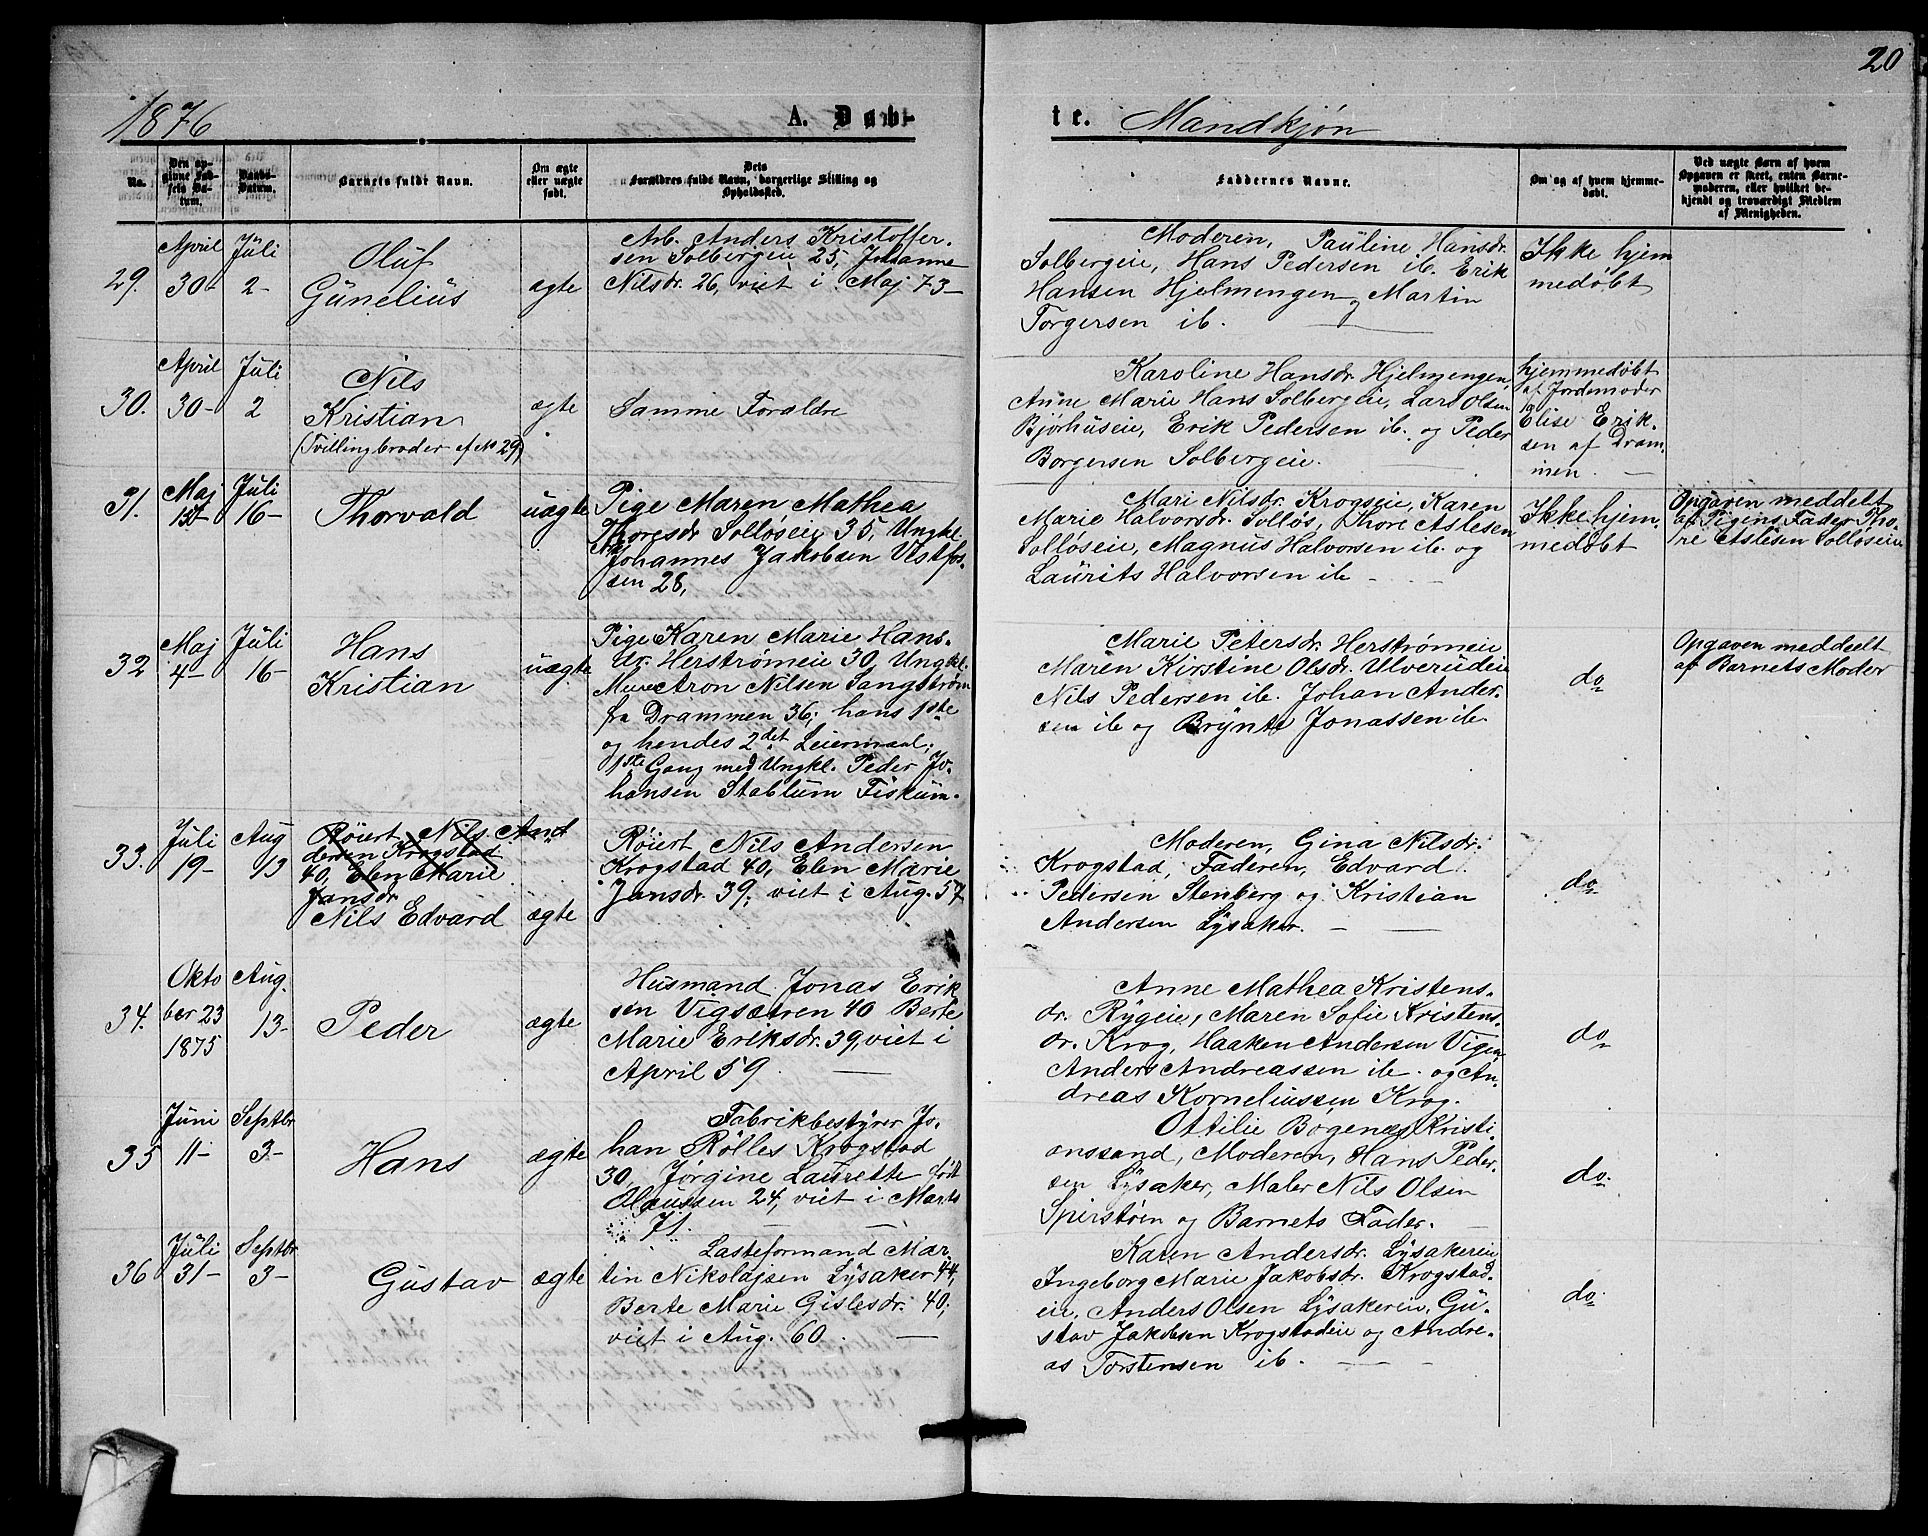 20
1876
A. Døbte. Mandkjøn
No.
Den opgivne Fødsels Datum.
Daabs-Datum.
Barnets fulde Navn.
Om ægte eller uægte født.
Dets Forældres fulde Navn, borgerlige Stilling og Opholdssted.
Faddernes Navne.
Om og af hvem hjemmedøbt.
Ved uægte Børn af hvem Opgaven er skeet, enten Barnemoderen, eller hvilket bekjendt og troværdigt Medlem af Menigheden.
29.
April
30-
Juli
2-
Oluf
Gunelius
ægte
Arb. Anders Kristoffer-
sen Solbergeie 25, Johanne
Nilsdr. 26, viet i Maj 73-
Moderen, Pauline Hansdr.
Solbergeie, Hans Pedersen ib. Erik
Hansen Hjelmengen og Martin
Torgersen ib.
Ikke hjem
medøbt
30.
April
30-
Juli
2
Nils
Kristian
(Tvillingbroder af No 29)
ægte
Samme Forældre
Karoline Hansdr. Hjelmengen,
Anne Marie Hans Solbergeie, Lars Olsen
Bjørhuseie, Erik Pedersen ib. og Peder
Borgersen Solbergeie.
hjemmedøbt
af Jordemoder
Elise Erik-
sen af Dram-
men.
31.
Maj
15-
Juli
16-
Thorvald
uægte
Pige Maren Mathea
Thoresdr. Solløseie 35, Ungkl.
Johannes Jakobsen Vestfos-
sen 28,
Mari Nilsdr. Krogseie, Karen
Marie Halvorsdr. Solløs, Thore Aslesen
Solløseie, Magnus Halvorsen ib. og
Laurits Halvorsen ib
Ikke hjem-
medøbt
Opgaven meddelt
af Pigens Fader Tho-
re Aslesen Solløseie
32
Maj
4-
Juli
16-
Hans
Kristian
uægte
Pige Karen Marie Hans-
dr. Herstrømeie 30, Ungkl.
Murer Aron Nilsen Sangstrøm
fra Drammen 36; hans 1ste
og hendes 2det Leiermaal;
1ste Gang med Ungkl. Peder Jo-
hansen Stablum Fiskum.
Marie Petersdr. Herstrømeie
Maren Kirstine Olsdr. Ulverudeie
Nils Pedersen ib. Johan Ander-
sen ib og Brynte Jonassen ib
do
Opgaven meddelt
af Barnets Moder
33.
Juli
19-
Aug
13
Røiert, Nils And
dersen Krogstad
40, Elen Marie
Jansdr.
Nils Edvard
ægte
Røiert, Nils Andersen
Krogstad 40, Elen Marie
Jansdr. 39, viet i Aug. 57
Moderen, Gina Nilsdr.
Krogstad, Faderen, Edvard
Pedersen Stenberg og Kristian
Andersen Lysaker.
do
34.
Okto
ber 23
1875
Aug.
13-
Peder
ægte
Husmand Jonas Erik
sen Vigsætren 40 Berte
Marie Eriksdr. 39, viet i
April 59
Anne Mathea Kristens-
dr. Rygeie, Maren Sofie Kristens-
dr. Krog, Haaken Andersen Vigen
Anders Andreassen ib. og An-
dreas Korneliussen Krog.
do
35
Juni
11-
Septbr
3-
Hans
ægte
Fabrikbestyrer Jo-
han Rølles Krogstad
30, Jørgine Laurette født
Olaussen 24, viet i Marts
71.
Ottilie Bogenæs Kristi-
anssand, Moderen, Hans Peder-
sen Lysaker, Maler Nils Olsen
Spirstøen og Barnets Fader.
do.
36
Juli
31-
Septbr
3-
Gustav
ægte
Lasteformand Mar-
tin Nikolajsen Lysaker 44,
Berte Marie Gislesdr. 40;
viet i Aug. 60.
Karen Andersdr. Lysakereie
Ingeborg Marie Jakobsdr. Krogstad-
eie, Anders Olsen Lysakereie, Gu-
stav Jakobsen Krogstadeie og Andre-
as Torstensen ib.
do.